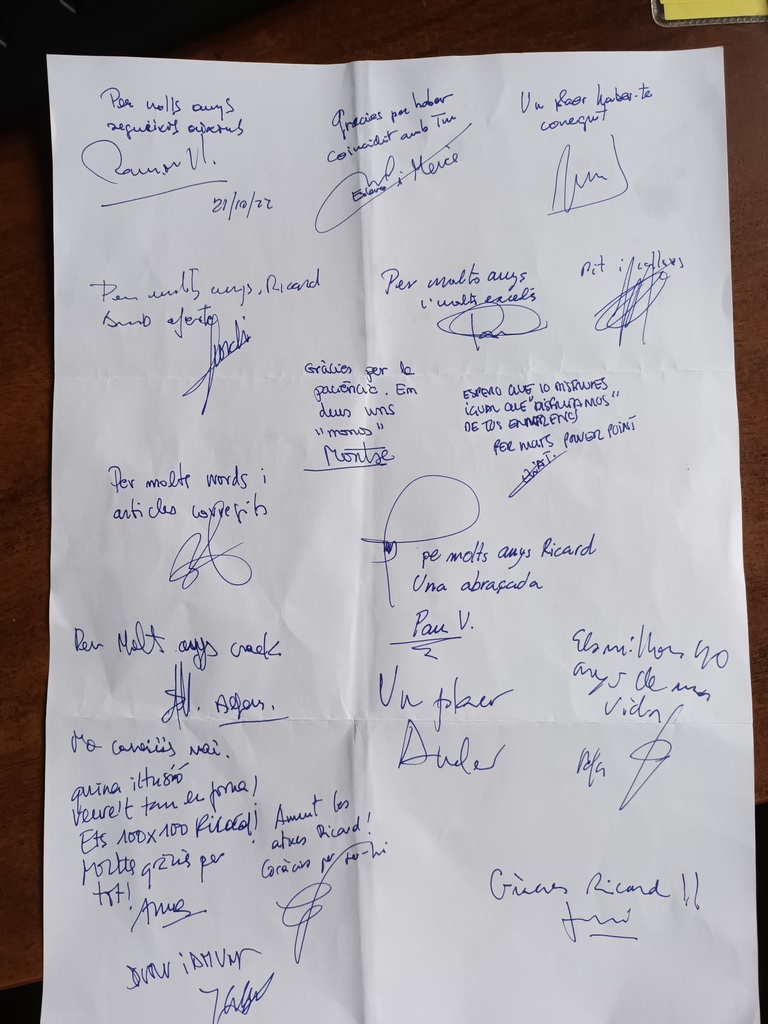 Per molts anys
Ramon V.
21/10/22
Gracias per haber
coincidit amb Tu
i Mercè
Un plaer haber-te
conegut
Per molts anys, Ricard
Amb afecte
Per molts anys
i molts excels
Pit i
Gràcies per la
paciència. Em
deus uns
"monos"
Montse
ESPERO QUE LO DISFRUTES
IGUAL QUE "DISFRUTAMOS"
DE TUS
PER MOLTS POWER POINT
Per molts words i
articles corregits
pe molts anys Ricard
Una abraçada
Pau V.
Per Molt anys crack
Un plaer
Ander
Els millors 40
anys de ma
vida
Rafa
No canviïs mai.
quina il·lusió
veure't tan en forma!
Ets 100x100 Ricard!
Moltes gràcies per
tot!
Anna
Amunt les
atxes Ricard!
Gràcies per ser-hi
Gràcies Ricard !!